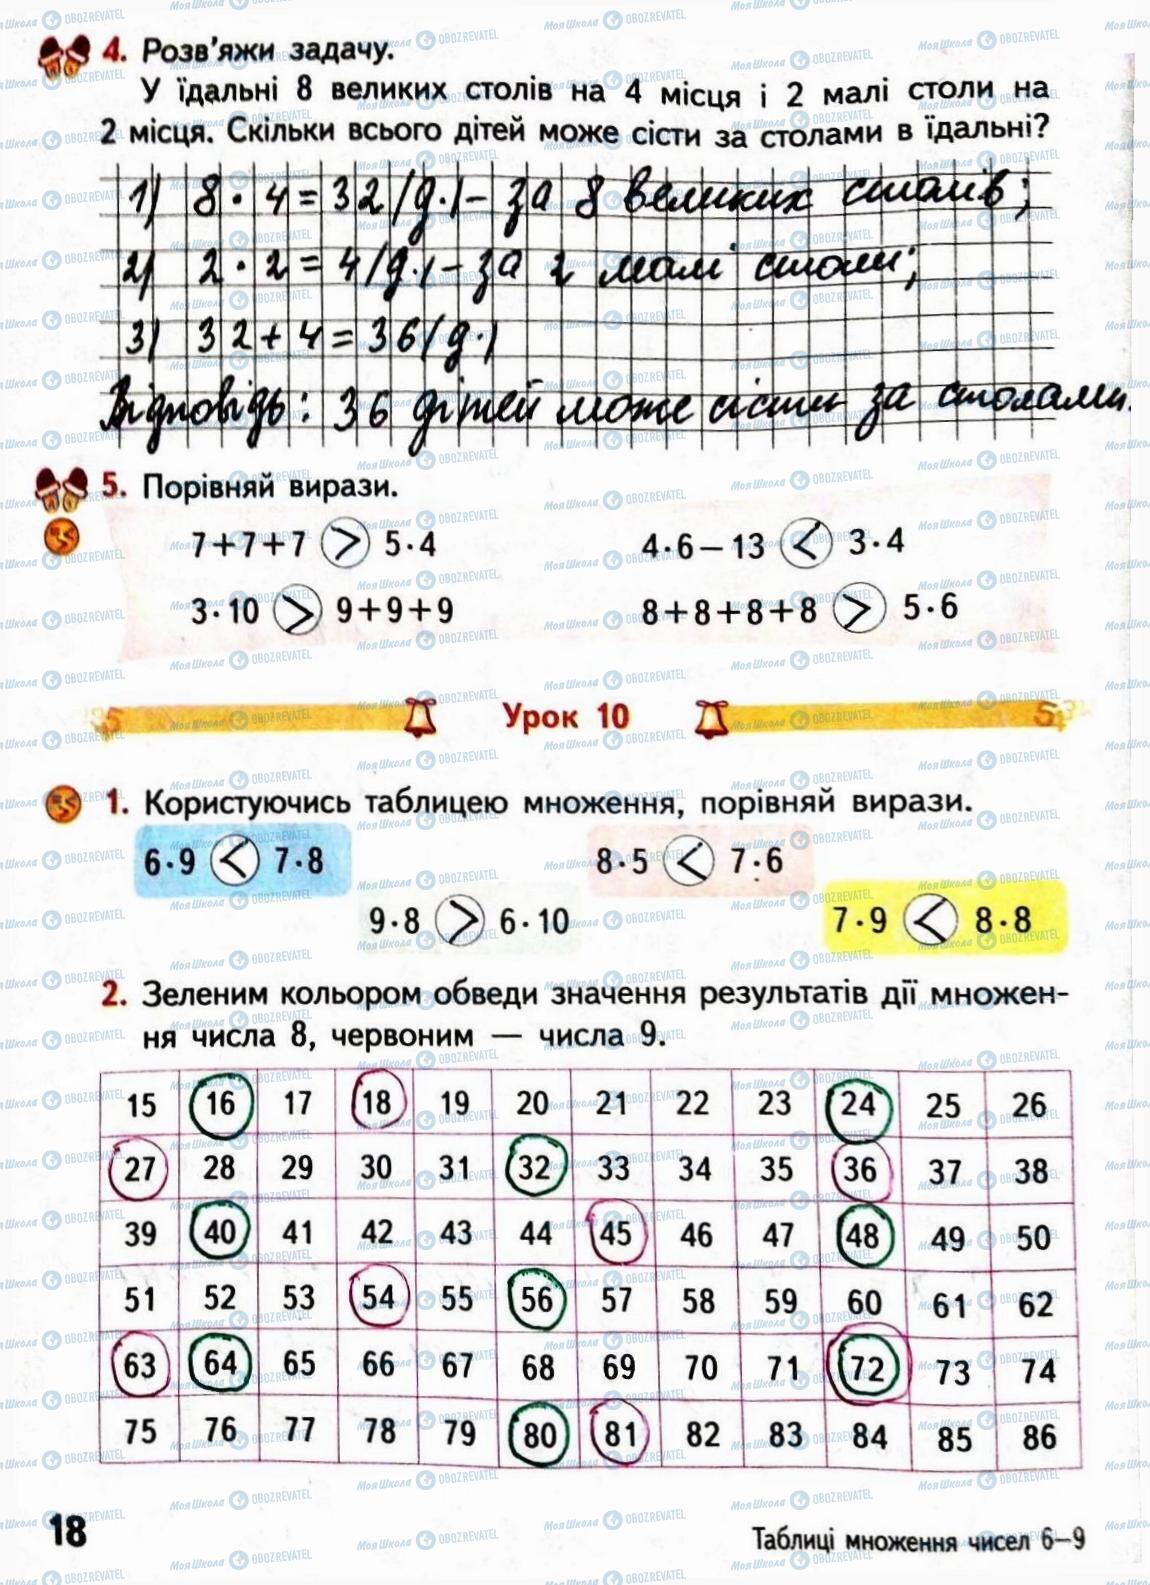 4. Розв'яжи задачу.
У їдальні 8 великих столів на 4 місця і 2 малі столи на
2 місця. Скільки всього дітей може сісти за столами в їдальні?
1) 8 · 4 = 32 (д.) – за 8 великих столів;
2) 2 · 2 = 4 (д.) – за 2 малі столи;
3) 32 + 4 = 36 (д.)
Відповідь: 36 дітей може сісти за столами.
5. Порівняй вирази.
7 + 7 + 7 > 5 · 4 4 · 6 – 13 < 3 · 4
3 · 10 > 9 + 9 + 9 8 + 8 + 8 + 8 > 5 · 6
Урок 10
1. Користуючись таблицею множення, порівняй вирази.
6 · 9 < 7 · 8 8 · 5 < 7 · 6
9 · 8 > 6 · 10 7 · 9 < 8 · 8
2. Зеленим кольором обведи значення результатів дії множен-
ня числа 8, червоним — числа 9.
15 16 17 18 19 20 21 22 23 24 25 26
27 28 29 30 31 32 33 34 35 36 37 38
39 40 41 42 43 44 45 46 47 48 49 50
51 52 53 54 55 56 57 58 59 60 61 62
63 64 65 66 67 68 69 70 71 72 73 74
75 76 77 78 79 80 81 82 83 84 85 86
18
Таблиці множення чисел 6–9
МояШкола OBOZREVATEL